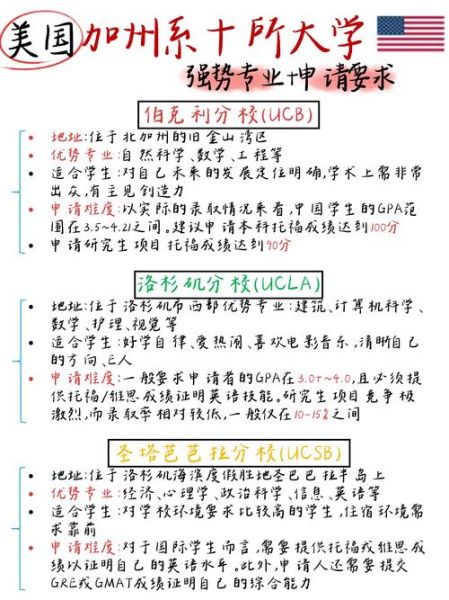 美国加州系十所大学
强势专业+申请要求
伯克利分校(UCB)
地址:位于北加州的旧金山湾区
优势专业:自然科学、数学、工程等
适合学生:对自己未来的发展定位明确,学术上需非常
出众,有主见创造力
申请难度:以实际的录取情况来看,中国学生的GPA范
围在3.5~4.21之间。建议申请本科托福成绩达到100分
申请研究生项目托福成绩达到90分
洛杉矶分校(UCLA)
地址:位于洛杉矶市西部优势专业:建筑、计算机科学、
数学、护理、视觉等
适合学生:好学自律、爱热闹、喜欢电影音乐,清晰自己
的方向、E人
申请难度:一般要求申请者的GPA在3.0+~4.0,且必须提
供托福/雅思成绩证明英语技能。研究生项目竞争极
激烈,而录取率相对较低,一般仅在10-15%之间
圣塔芭芭拉分校(UCSB)
地址:位于洛杉矶海滨度假胜地圣巴巴拉半岛上
优势专业:经济、心理学、政治科学、信息、英语等
适合学生:对学校环境要求比较高的学生,住宿环境需
求靠前
申请难度:对于国际学生而言,需要提供托福或雅思成
绩以证明自己的英语水平。此外,申请人还需要提交
GRE或GMAT成绩证明自己的综合能力